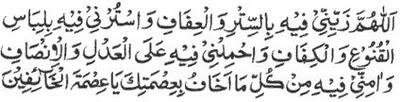 اَللّٰهُمَّ زَيِّنِّيْ فِيْهِ بِالسِّتْرِ وَالْعِفَافِ وَاسْتُرْنِيْ فِيْهِ بِلِبَاسِ
الْقُنُوْعِ وَالْكِفَافِ وَاحْمِلْنِيْ فِيْهِ عَلَى الْعَدْلِ وَالْاِنْصَافِ
وَاٰمِنِّيْ فِيْهِ مِنْ كُلِّ مَا اَخَافُ بِعِصْمَتِكَ يَا عِصْمَةَ الْخَائِفِيْنَ